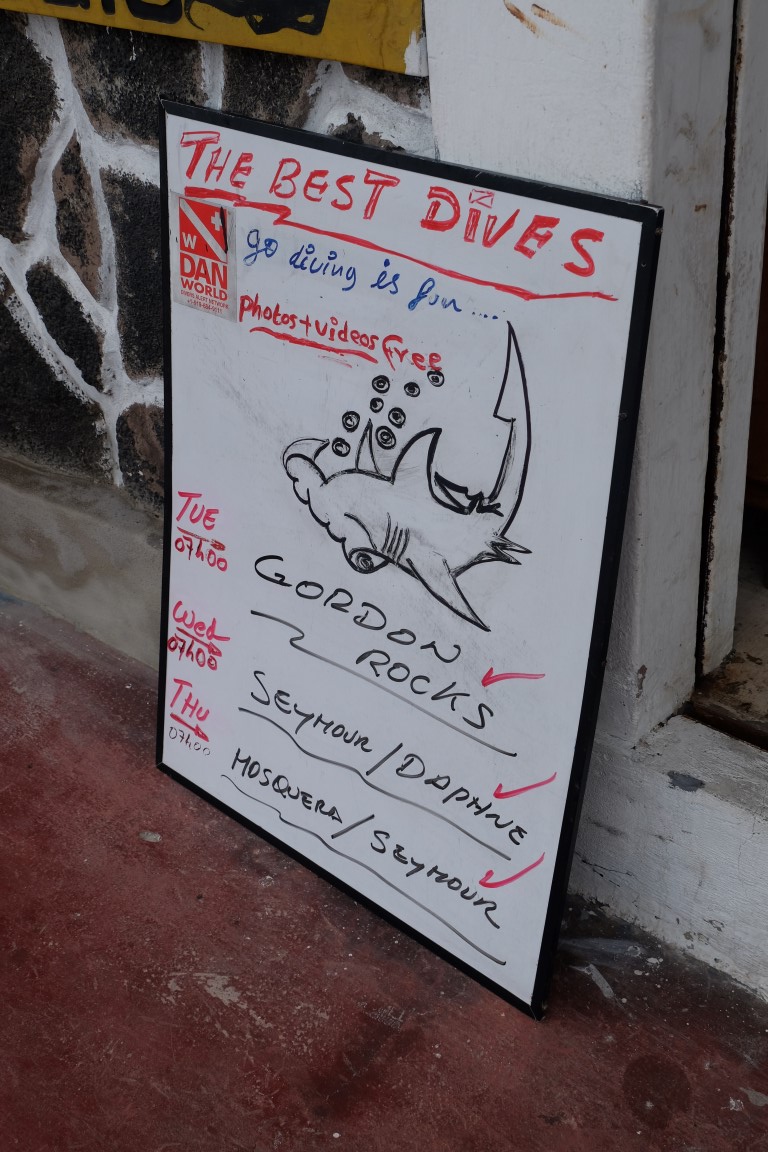 THE BEST DIVES
go diving is fun....
W
DAN
WORLD
photos+videos free
TUE
07h00
GORDON
ROCKS
Wed
07h00
SEYMOUR/DAPHNE
THU
07h00
MOSQUERA/SEYMOUR